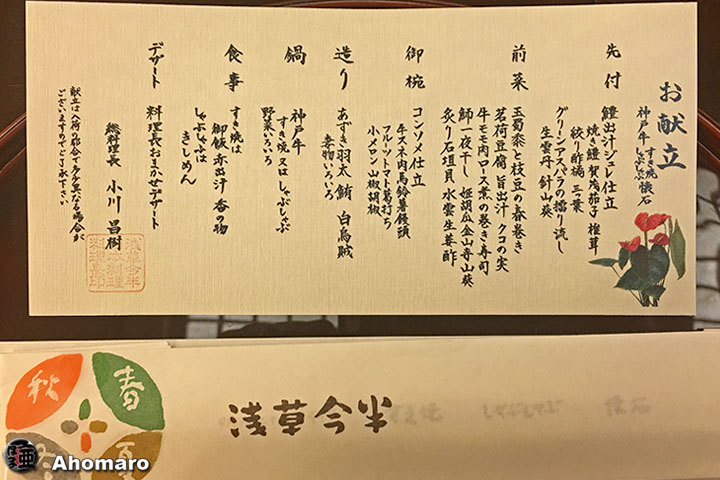 お献立
神戸牛 すき焼 しゃぶしゃぶ 懐石
先付
鱧出汁ジュレ仕立
焼き鱧 賀茂茄子 椎茸
絞り酢橘 三つ葉
グリーンアスパラの擂り流し
生雲丹 針山葵
前菜
玉蜀黍と枝豆の春巻き
茗荷豆腐 旨出汁 クコの実
牛モモ肉ロース煮の巻き寿司
鰤一夜干し 姫胡瓜金山寺山葵
炙り石垣貝 水雲生姜酢
御椀
コンソメ仕立
牛スネ肉馬鈴薯饅頭
フルーツトマト葛打ち
小メロン 山椒胡椒
造り
あずき羽太 鮪 白烏賊
妻物いろいろ
鍋
神戸牛
すき焼 又は しゃぶしゃぶ
野菜いろいろ
食事
すき焼は
御飯 赤出汁 香の物
しゃぶしゃぶは
きしめん
デザート
料理長おまかせデザート
総料理長 小川 昌樹
献立は入荷の都合で多少異なる場合が
ございますのでご了承下さい
浅草今半
日本料理
料理長印
春
秋
夏
冬
浅草今半
しゃぶしゃぶ
懐石
Ahomaro